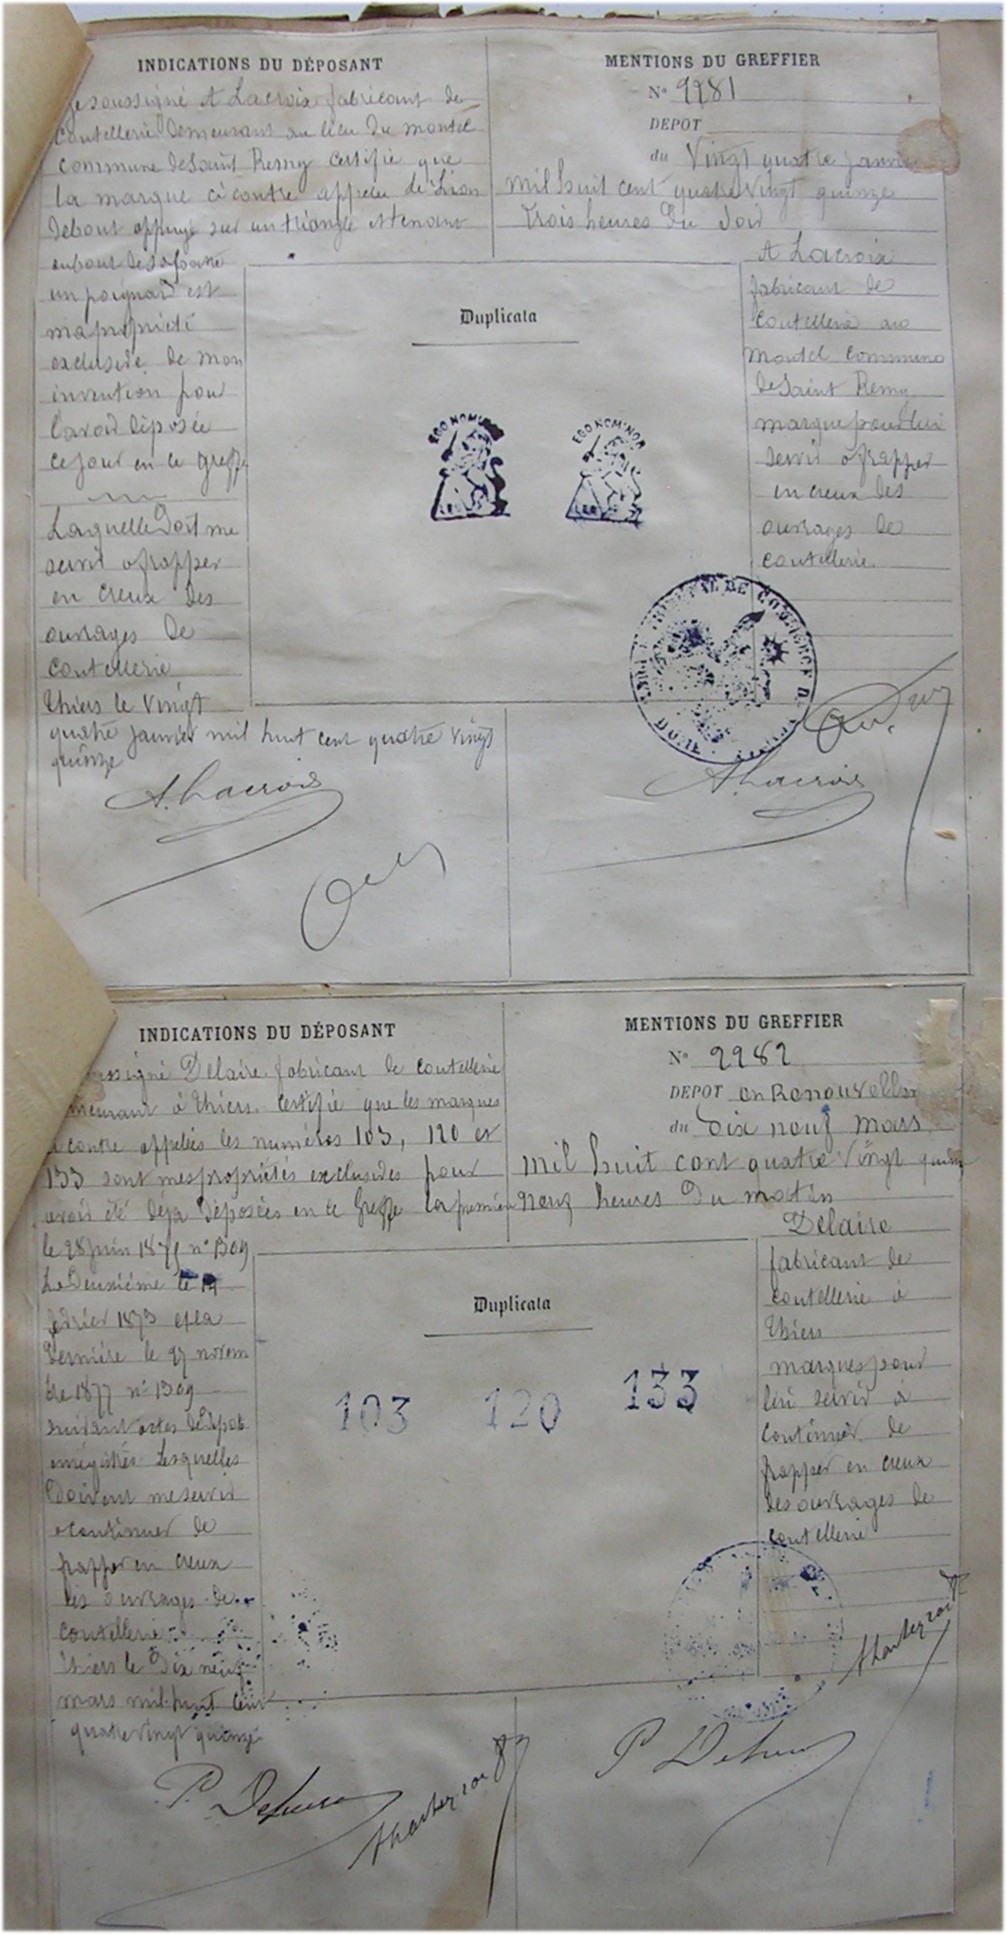 INDICATIONS DU DÉPOSANT
Je soussigné A Lacroix fabricant de
coutellerie Demeurant au lieu du montel
commune de Saint Remy certifie que
la marque ci contre appelée le Lion
Debout appuyé sur un triangle et tenant
au bout de sa
un poignard est
ma propriété
exclusive de mon
invention pour
l'avoir déposée
ce jour en ce Greffe
Laquelle Doit me
servir a frapper
en creux des
ouvrages de
coutellerie
Thiers le Vingt
quatre janvier mil huit cent quatre vingt
quinze
A. Lacroix
MENTIONS DU GREFFIER
N° 2281
DEPOT
du Vingt quatre janvier
mil huit cent quatre Vingt quinze
trois heures du Soir
A Lacroix
fabricant de
coutellerie au
Montel commune
de Saint Remy
marque pour lui
servir a frapper
en creux des
ouvrages de
coutellerie
Duplicata
EGO NOMINOR
LEO
EGO NOMINOR
LEO
TRIBUNAL DE COMMERCE
A. Lacroix
INDICATIONS DU DÉPOSANT
Delaire fabricant de coutellerie
à Thiers certifie que les marques
contre appelées les numéros 103, 120 et
133 sont mes propriétés exclusives pour
avoir été déja Déposées en ce Greffe la première
le 28 juin 187
La Deuxième le
février 1873 et la
Dernière le 27 novem
bre 1877 n° 1309
suivant actes de Dépot
enregistrés Lesquelles
doivent me servir
a continuer de
frapper en creux
des ouvrages de
coutellerie
Thiers le Dix neuf
mars mil huit cent
quatre vingt quinze
P. Delaire
MENTIONS DU GREFFIER
N° 2282
DEPOT en Renouvellem
du Dix neuf mars
mil huit cent quatre Vingt quinze
neuf heures du matin
Delaire
fabricant de
coutellerie à
Thiers
marques pour
lui servir à
continuer de
frapper en creux
des ouvrages de
coutellerie
Duplicata
103 120 133
P. Delaire